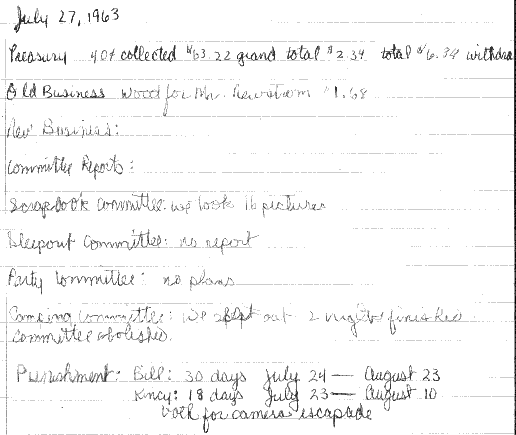 July 27, 1963
Treasury 40¢ collected $63.22 grand total $2.34 total $6.34 withdra
Old Business Wood for Mr. $1.68
New Business:
Committee Reports:
Scrapbook Committee: we took 16 pictures
Sleepout Committee: no report
Party Committee: no plans
Camping Committee: We slept out 2 nights finished
committee abolished.
Punishment: Bill: 30 days July 24 — August 23
18 days July 23 — August 10
both for camera escapade